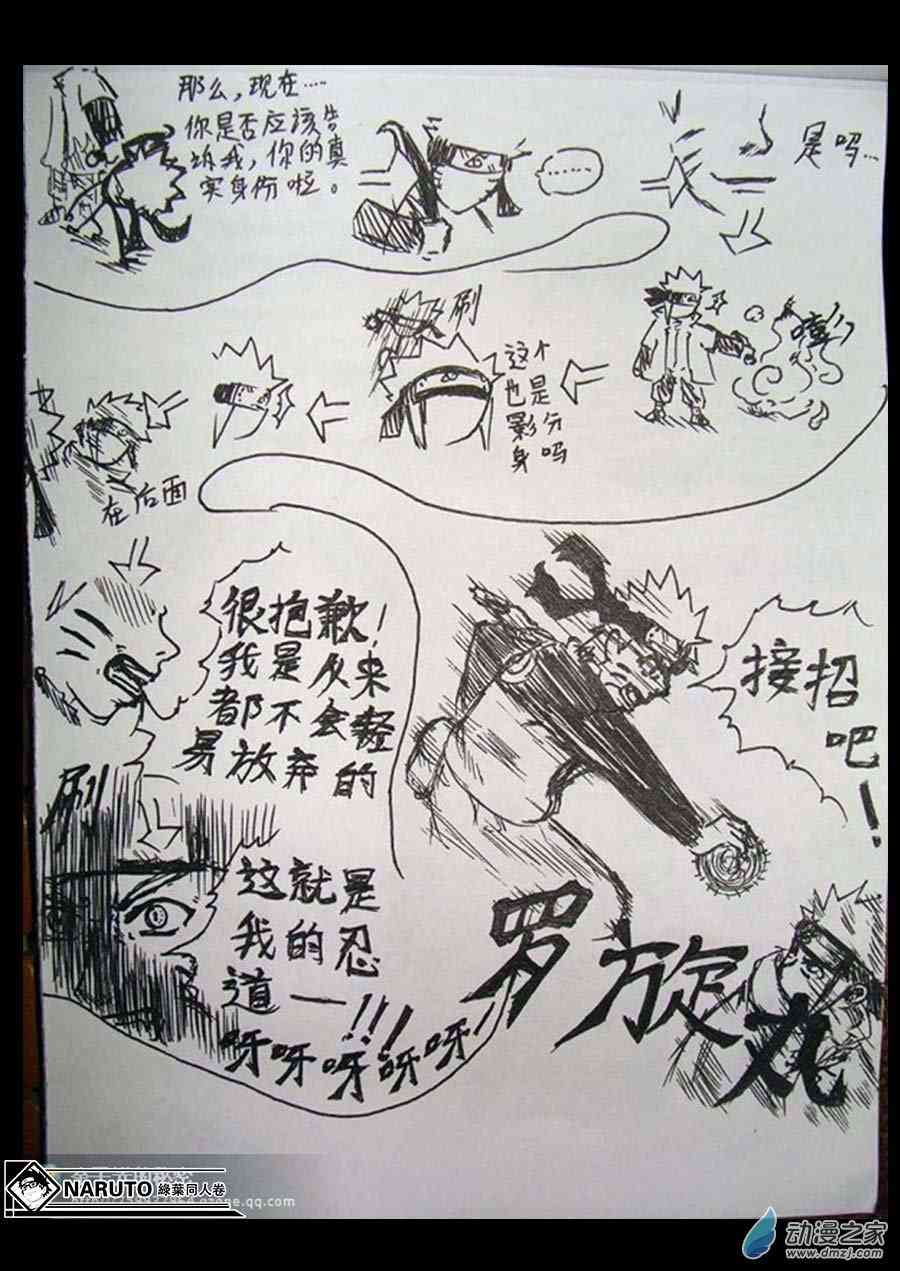 那么,现在……
你是否应该告
诉我,你的真
实身份啦。
……
是吗…
嘭
这个
也是
影分
身吗
刷
在后面
很抱歉!
我是从来
都不会轻
易放弃的
刷
这就是
我的忍
道——!!!
呀呀呀呀呀!
接招
吧!
罗旋丸
NARUTO 綠葉同人卷
qzone.qq.com
动漫之家
www.dmzj.com